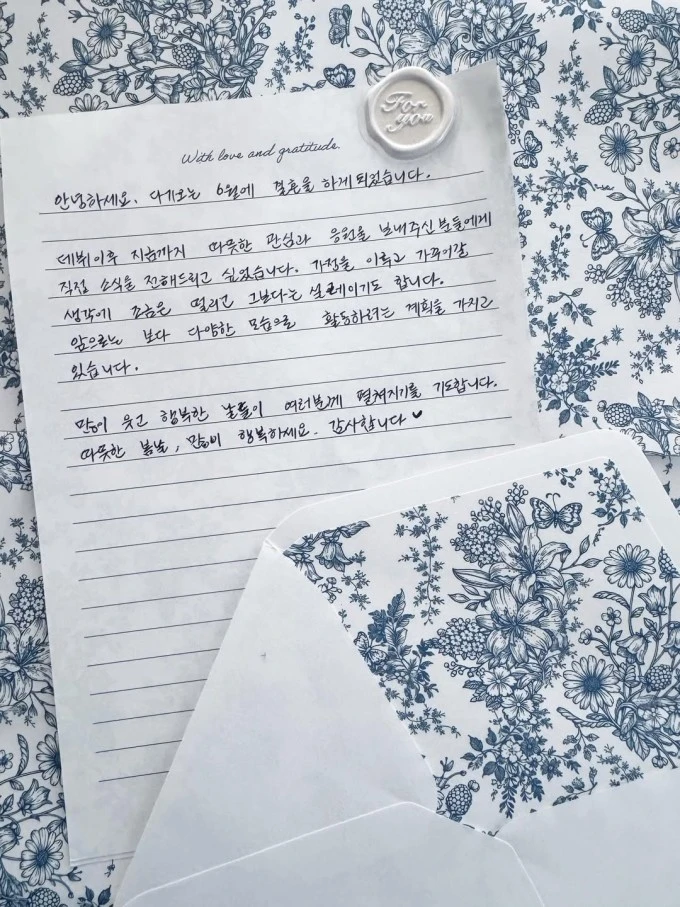 For
you
With love and gratitude.
안녕하세요. 다가오는 6월에 결혼을 하게 되었습니다.
데뷔이후 지금까지 따뜻한 관심과 응원을 보내주신 분들에게
직접 소식을 전해드리고 싶었습니다. 가정을 이루고 가꾸어갈
생각에 조금은 떨리고 그보다는 설레이기도 합니다.
앞으로는 보다 다양한 모습으로 활동하려는 계획을 가지고
있습니다.
많이 웃고 행복한 날들이 여러분께 펼쳐지기를 기도합니다.
따뜻한 봄날, 많이 행복하세요. 감사합니다 ♥